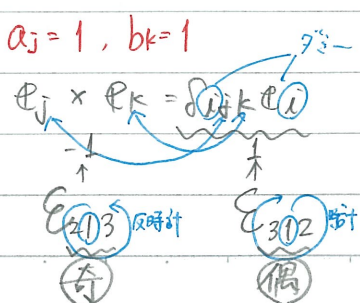 aj = 1 , bk = 1
ダミー
ej × ek = δijk ei
-1 1
↑ ↑
ε213 反時計 ε312 時計
奇 偶